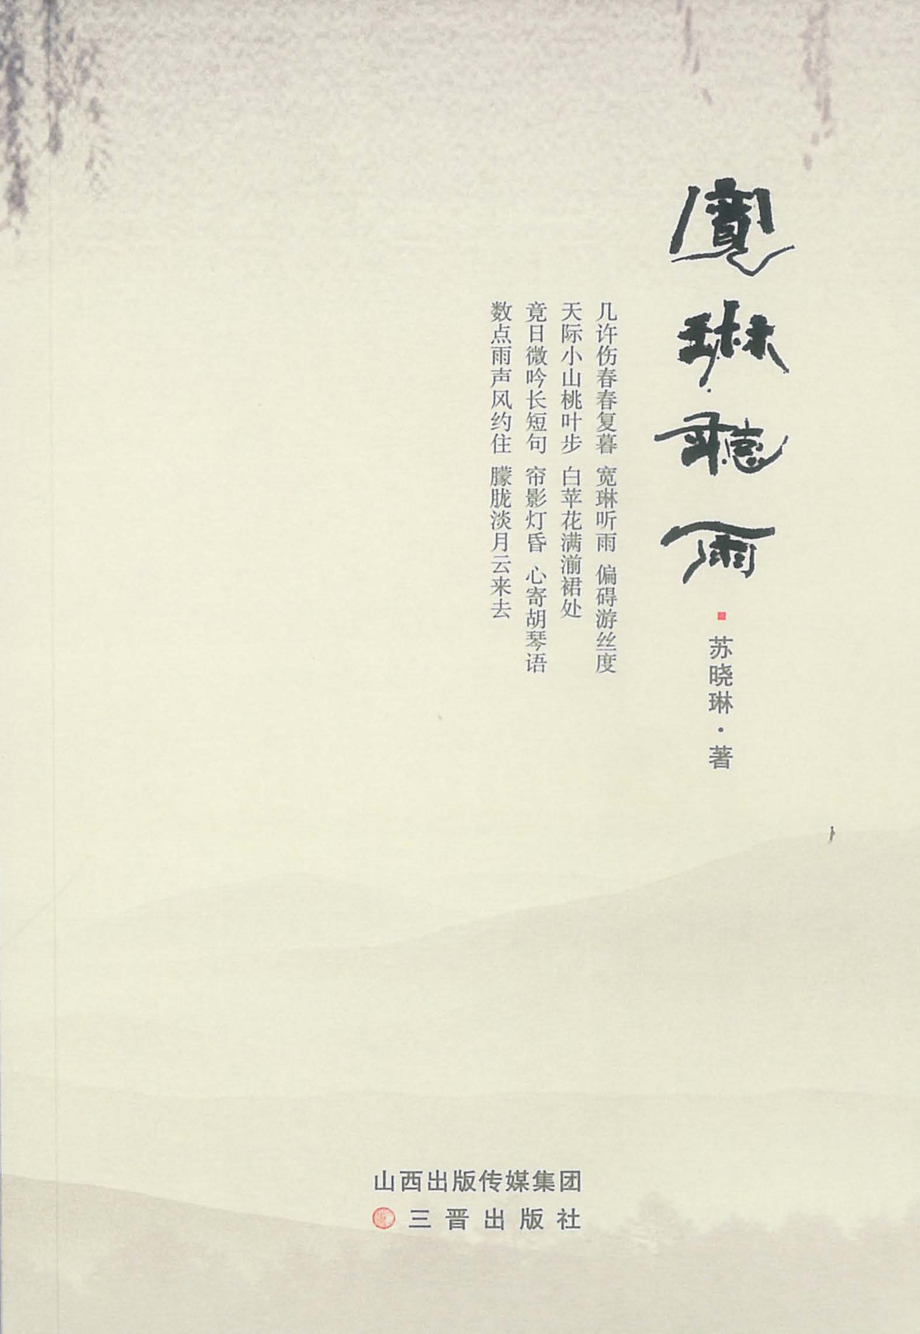 寬琳聽雨
苏晓琳·著
几许伤春春复暮 宽琳听雨 偏碍游丝度
天际小山桃叶步 白苹花满湔裙处
竟日微吟长短句 帘影灯昏 心寄胡琴语
数点雨声风约住 朦胧淡月云来去
山西出版传媒集团
三晋出版社